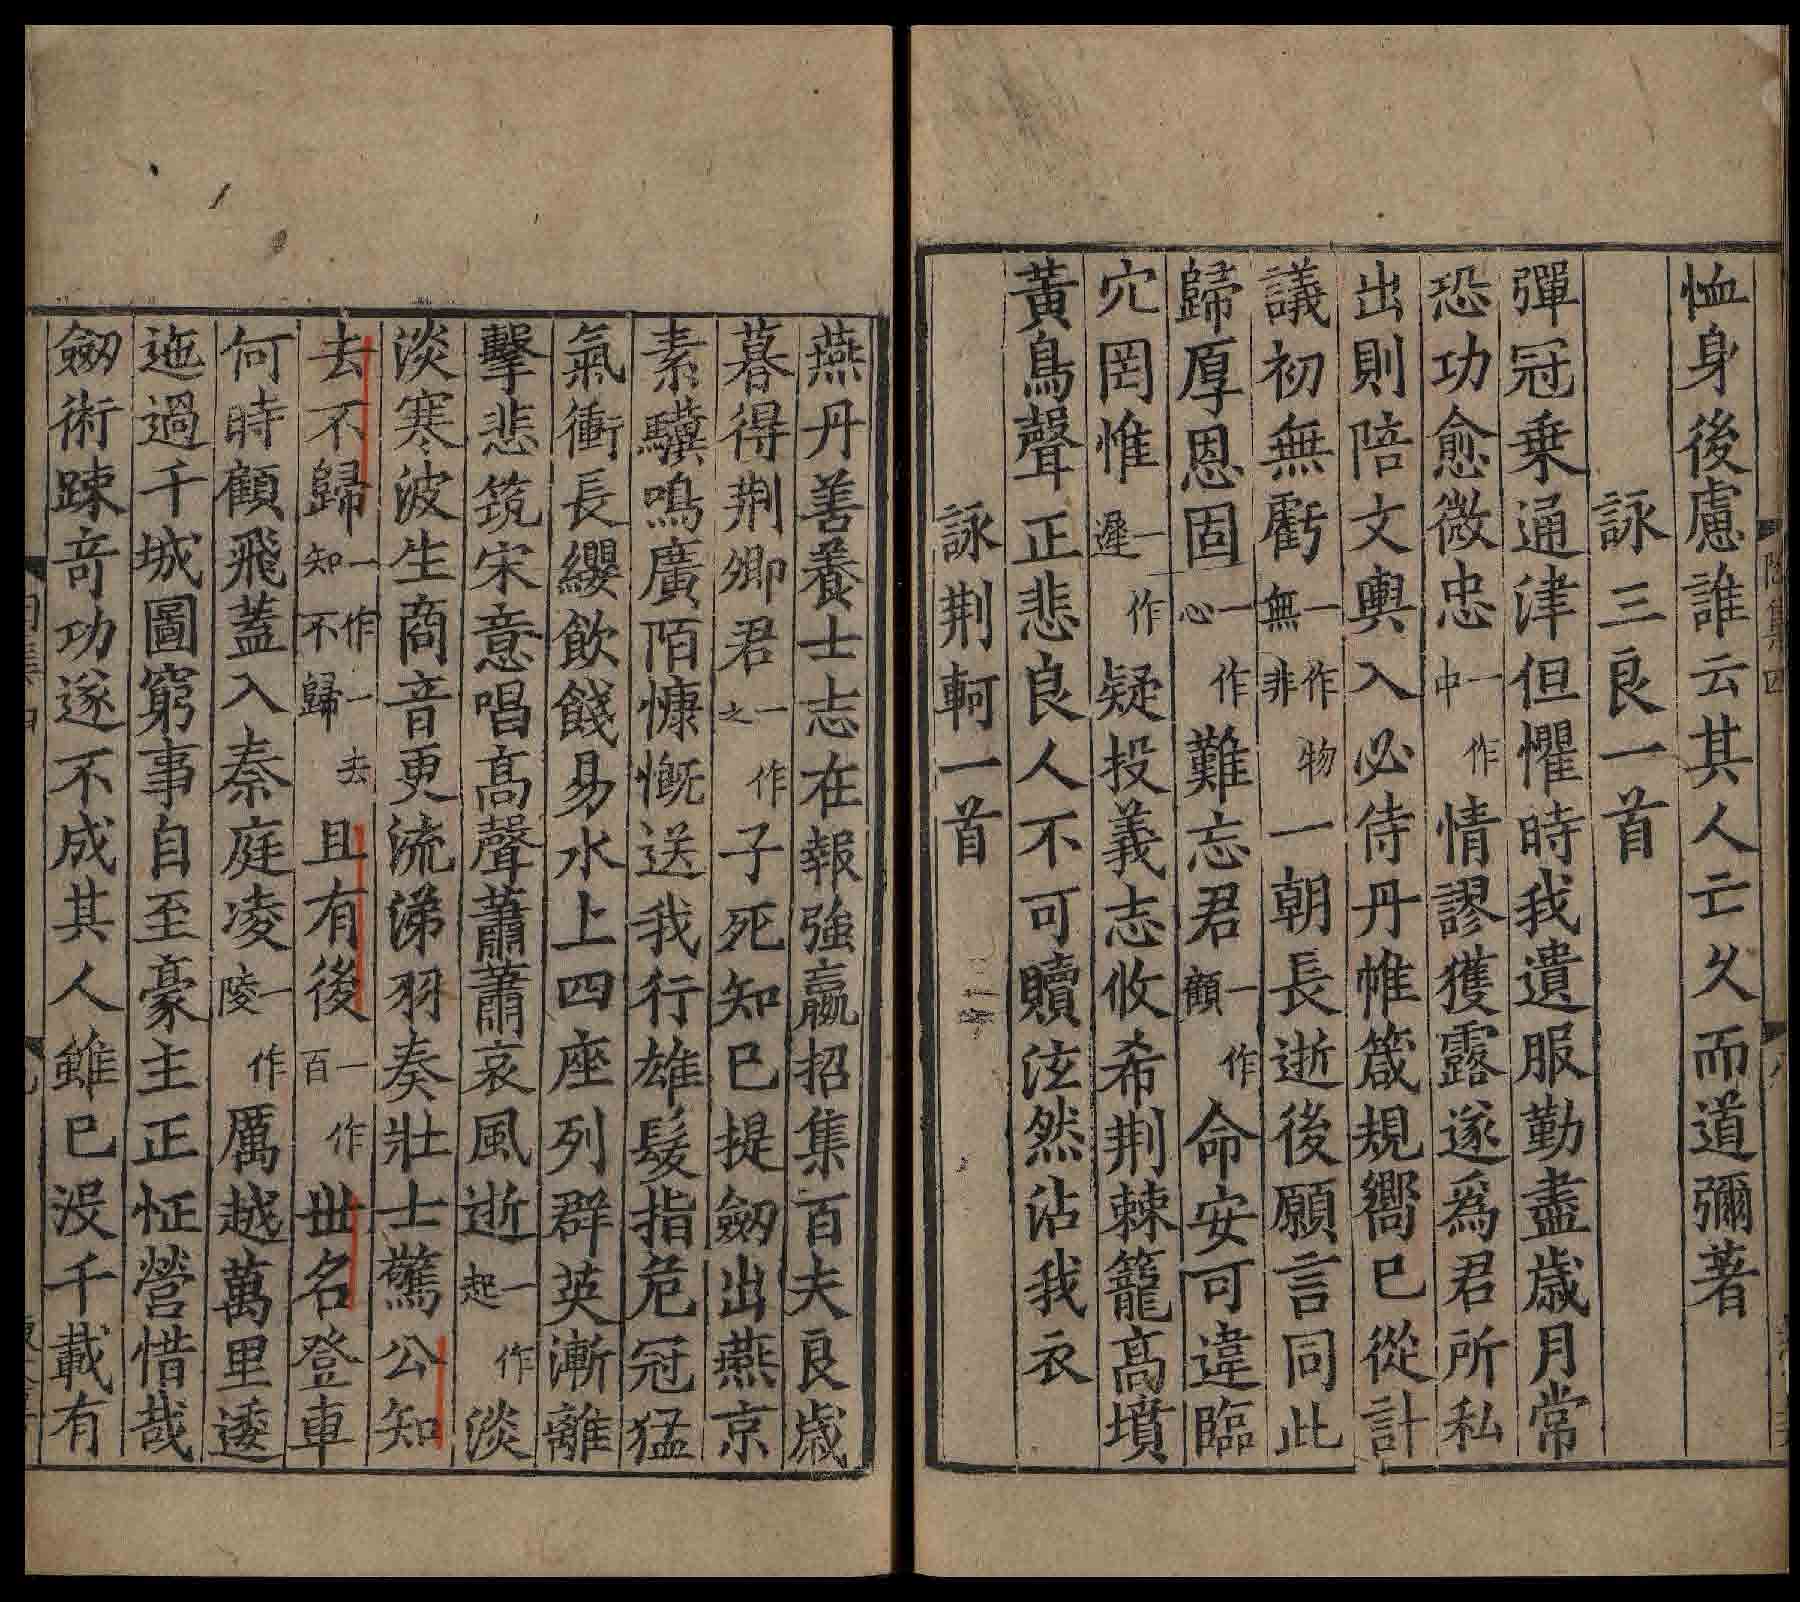 恤身後慮誰云其人亡久而道彌著
詠三良一首
彈冠乗通津但懼時我遺服勤盡歲月常
恐功愈微忠一作中情謬獲露遂爲君所私
出則陪文輿入必侍丹帷箴規嚮已從計
議初無虧一作無非物一朝長逝後願言同此
歸厚恩固一作心難忘君一作顧命安可違臨
穴罔惟一作遲疑投義志攸希荆棘籠高墳
黃鳥聲正悲良人不可贖泫然沾我衣
詠荆軻一首
燕丹善養士志在報強嬴招集百夫良歲
暮得荆卿君一作之子死知已提劒出燕京
素驥鳴廣陌慷慨送我行雄髮指危冠猛
氣衝長纓飲餞易水上四座列群英漸離
擊悲筑宋意唱高聲蕭蕭哀風逝一作起淡
淡寒波生商音更流涕羽奏壯士驚公知
去不歸一作知不一去歸且有後一作百世名登車
何時顧飛蓋入秦庭凌一作陵厲越萬里逶
迤過千城圖窮事自至豪主正怔營惜哉
劒術踈竒功遂不成其人雖已没千載有